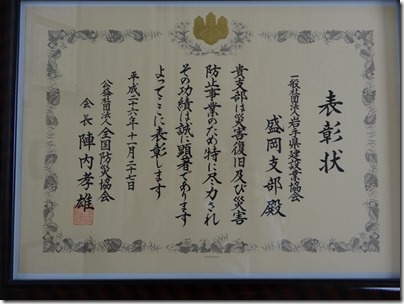 表彰状
一般社団法人岩手県建設業協会
盛岡支部殿
貴支部は災害復旧及び災害
防止事業のため特に尽力され
その功績は誠に顕著であります
よってここに表彰します
平成二十六年十一月二十七日
公益社団法人全国防災協会
会長 陣内孝雄